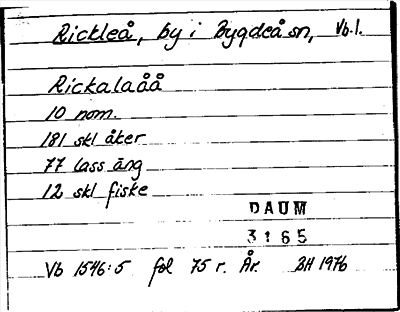 Rickleå, by i Bygdeå sn, Vb.l.
Rickalaåå
10 nom.
181 skl åker
77 lass äng
12 skl fiske
DAUM
3165
Vb 1546:5 fol 75 r. År. BH 1976